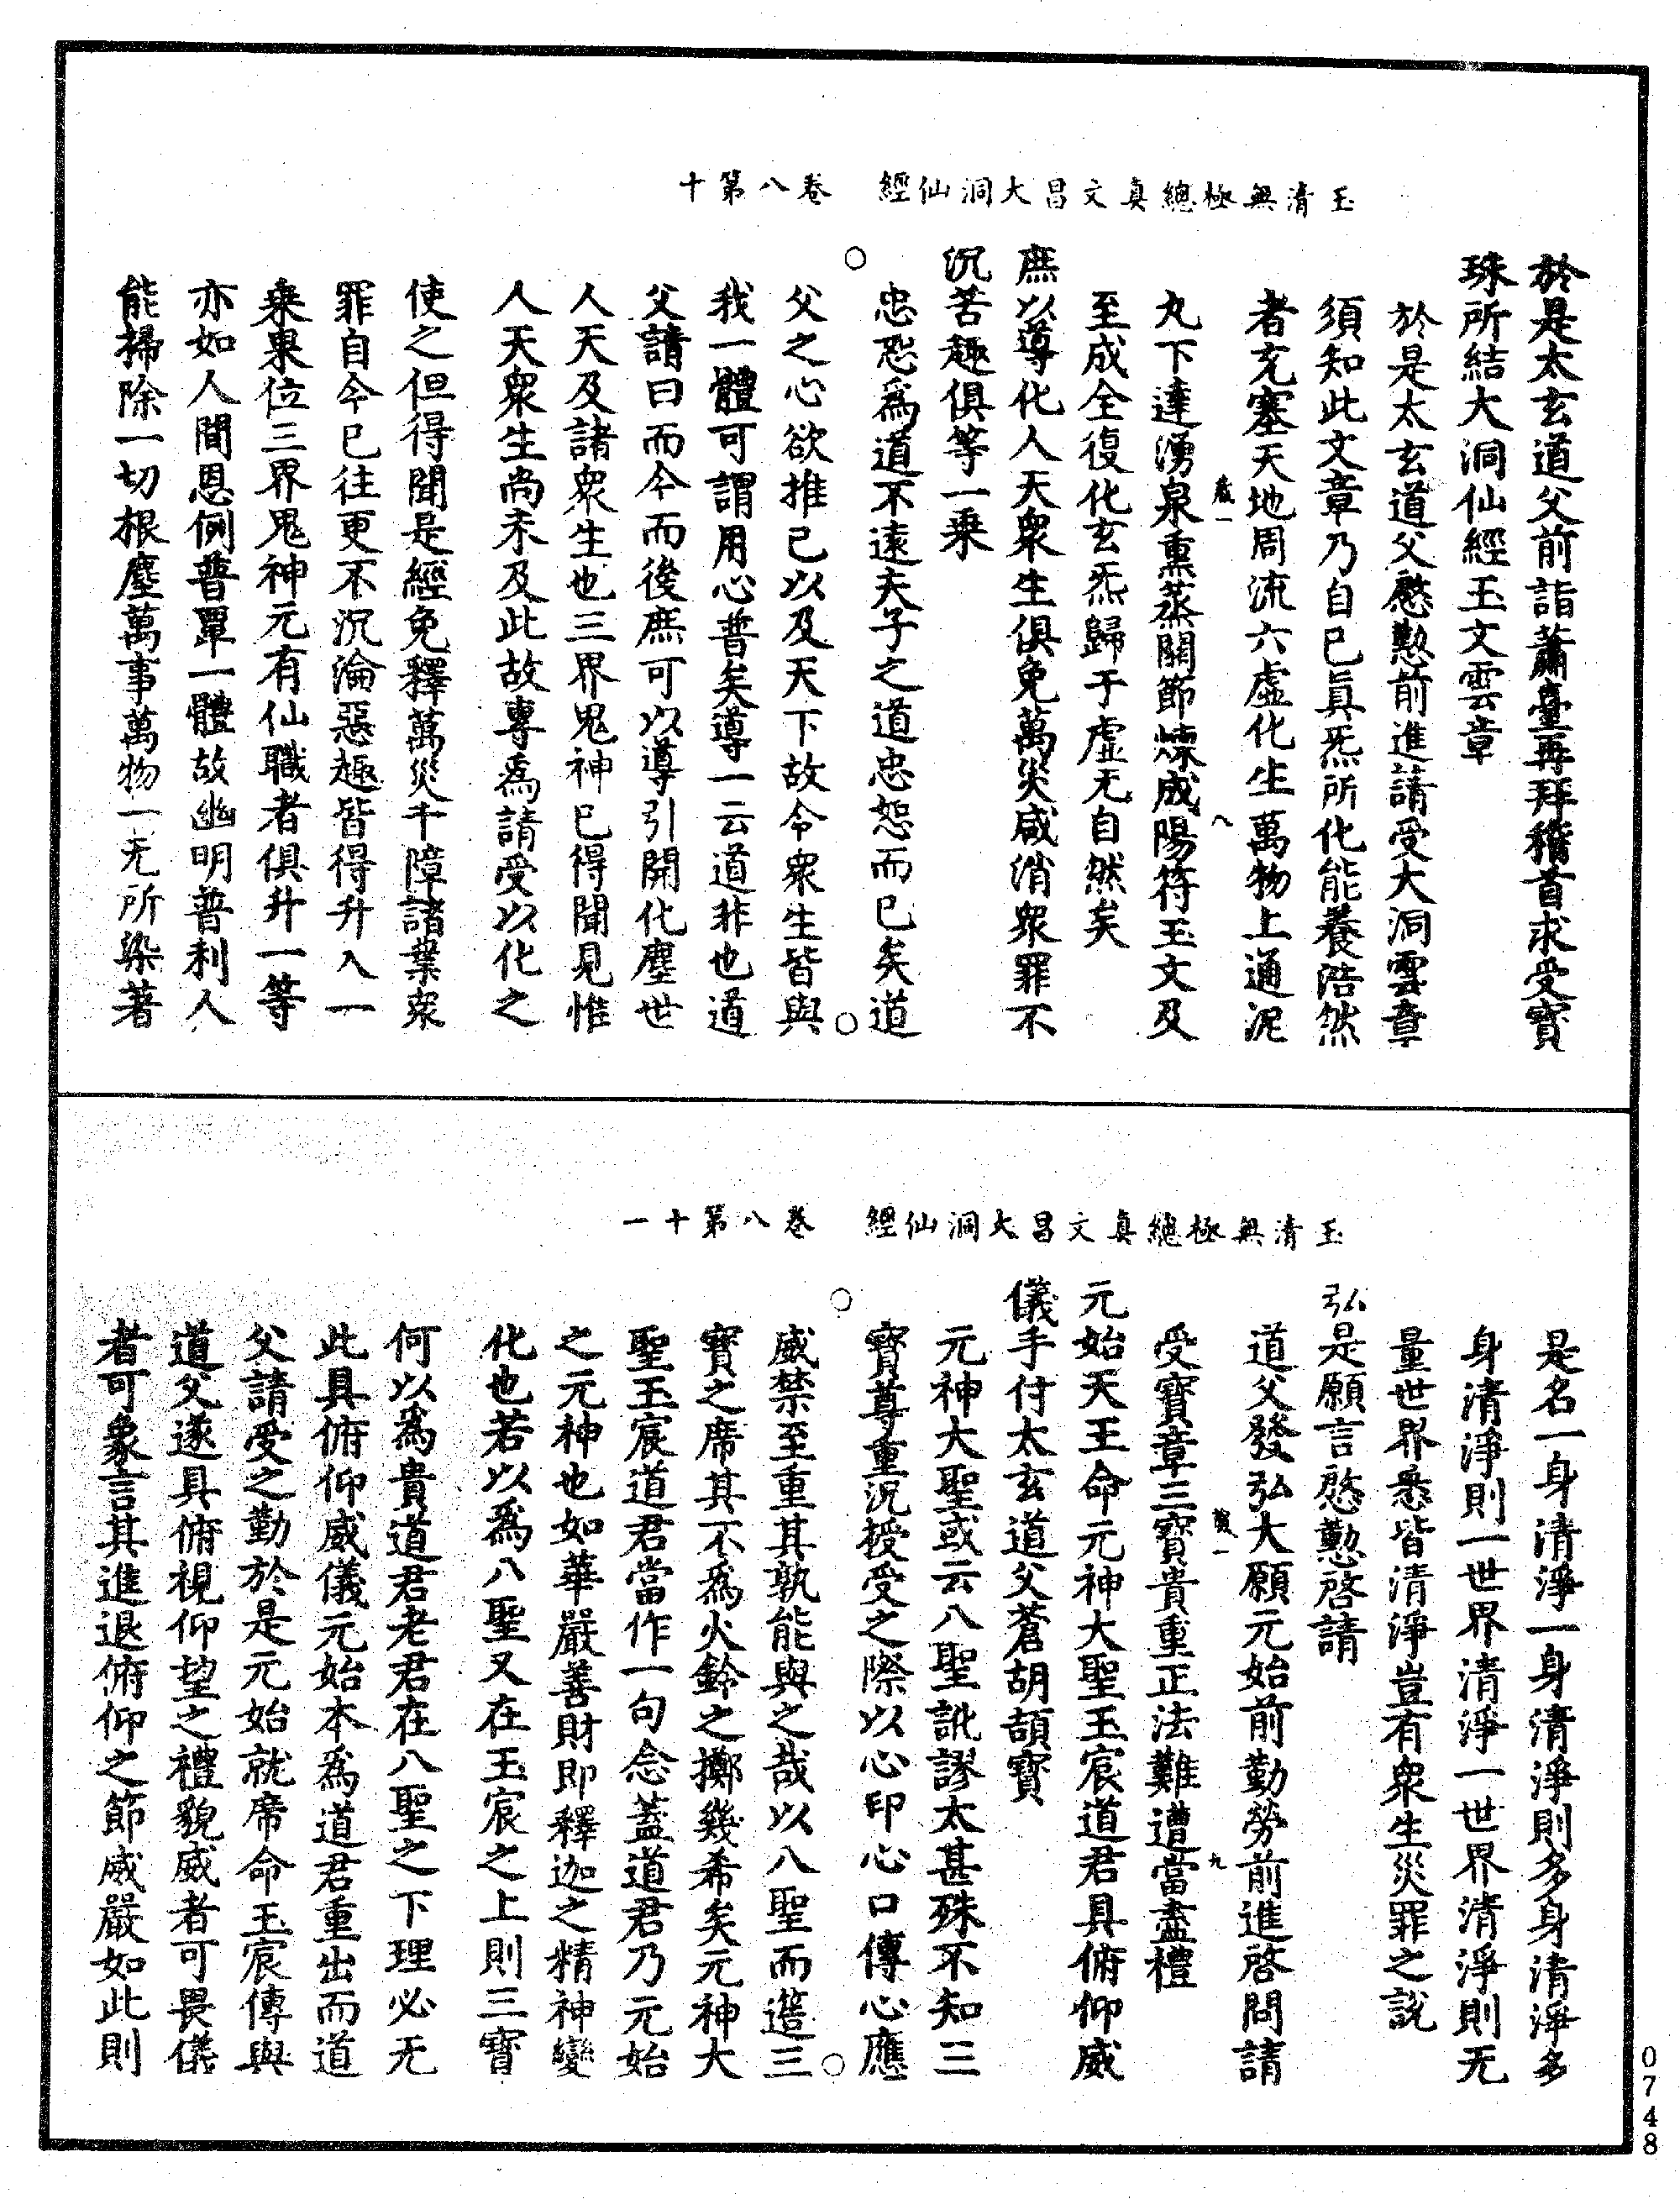 玉清無極總真文昌大洞仙經　卷八第十
於是太玄道父前詣蕭臺再拜稽首求受寶
珠所結大洞仙經玉文雲章
於是太玄道父慇懃前進請受大洞雲章
須知此文章乃自已真炁所化能養浩然
者充塞天地周流六虛化生萬物上通泥
丸下達湧泉熏蒸關節煉成陽符玉文及
至成全復化玄炁歸于虛无自然矣
庶以導化人天衆生俱免萬災咸消衆罪不
沉苦趣俱等一乗
忠恕爲道不遠夫子之道忠恕而已矣道
父之心欲推已以及天下故令衆生皆與
我一體可謂用心普矣導一云道非也道
父請曰而今而後庶可以導引開化塵世
人天及諸衆生也三界鬼神已得聞見惟
人天衆生尚未及此故專爲請受以化之
使之但得聞是經免釋萬災千障諸業衆
罪自今已往更不沉淪惡趣皆得升入一
乗果位三界鬼神元有仙職者俱升一等
亦如人間恩例普覃一體故幽明普利人
能掃除一切根塵萬事萬物一无所染著
玉清無極總真文昌大洞仙經　卷八第十一
是名一身清淨一身清淨則多身清淨多
身清淨則一世界清淨一世界清淨則无
量世界悉皆清淨豈有衆生災罪之說
弘是願言慇懃啓請
道父發弘大願元始前勤勞前進啓問請
受寶章三寶貴重正法難遭當盡禮
元始天王命元神大聖玉宸道君具俯仰威
儀手付太玄道父蒼胡頡寶
元神大聖或云八聖訛謬太甚殊不知三
寶尊重況授受之際以心印心口傳心應
威禁至重其孰能與之哉以八聖而造三
寶之席其不爲火鈴之擲幾希矣元神大
聖玉宸道君當作一句念蓋道君乃元始
之元神也如華嚴善財即釋迦之精神變
化也若以爲八聖又在玉宸之上則三寶
何以爲貴道君老君在八聖之下理必无
此具俯仰威儀元始本爲道君重出而道
父請受之勤於是元始就席命玉宸傳與
道父遂具俯視仰望之禮貌威者可畏儀
者可象言其進退俯仰之節威嚴如此則
0748